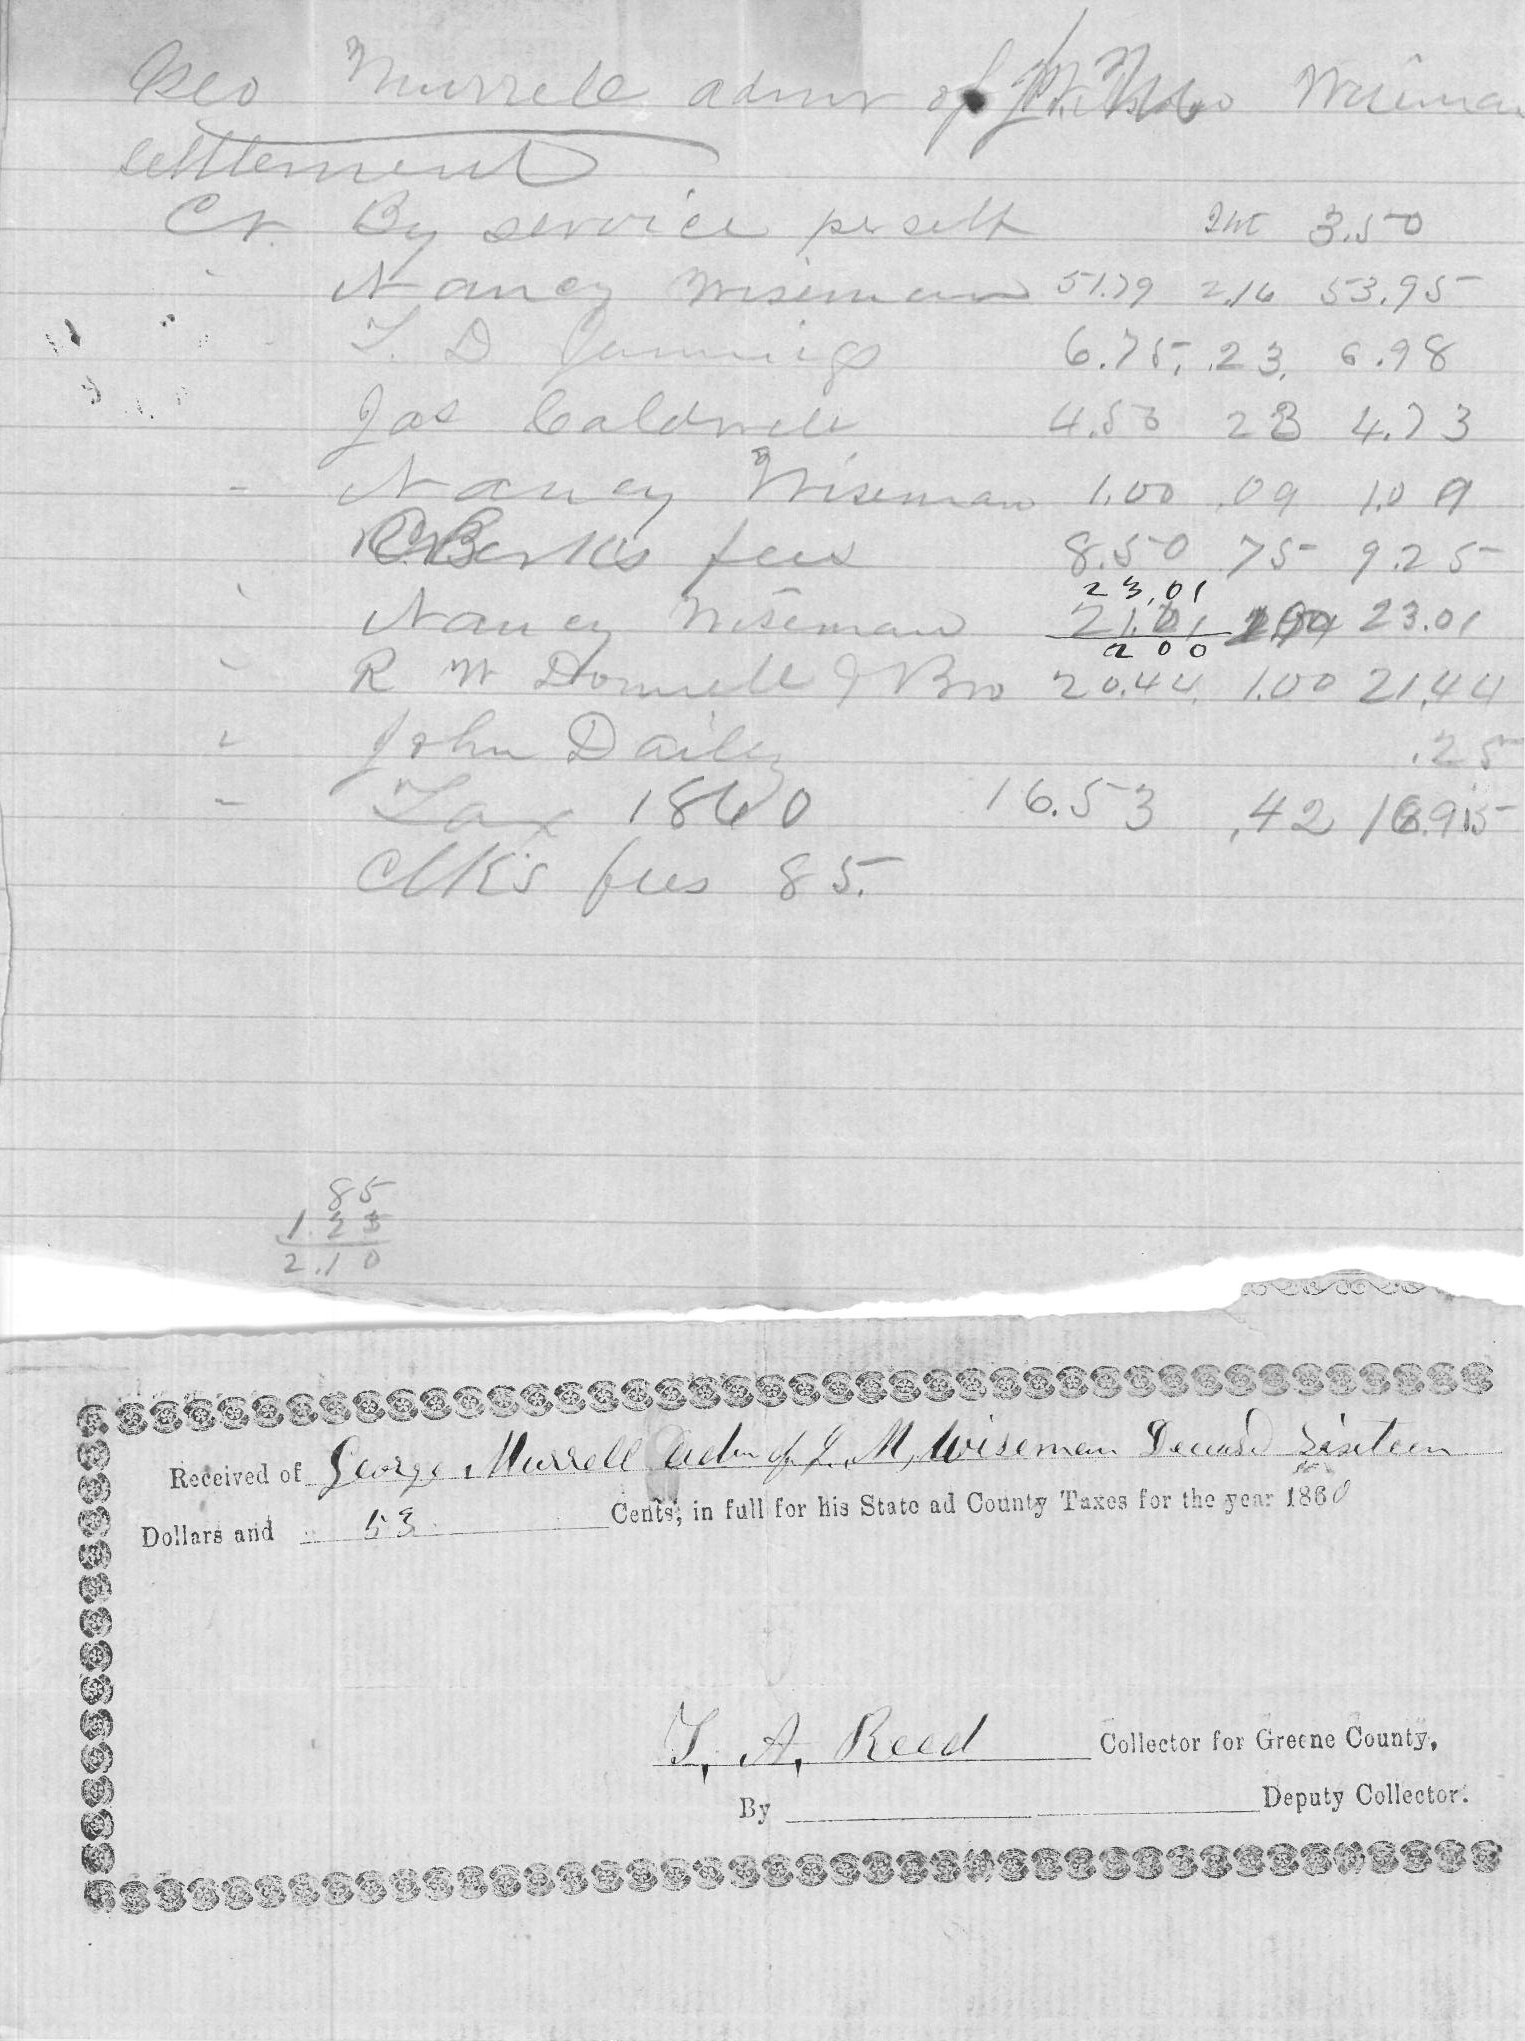 Geo Murrell admr of Wiseman
settlement
Cr. By service per self Int 3.50
" Nancy Wiseman 51.79 2.16 53.95
T. D Jennings 6.75, .23, 6.98
Jas Caldwell 4.50 23 4.73
" Nancy Wiseman 1.00 .09 1.09
Clerks fees 8.50 75 9.25
23,01
" Nancy Wiseman 21.01 23.01
200
" R W Donnell & Bro 20.44 1.00 21,44
" John Dailey .25
" Tax 1860 16.53 ,42 16.95
Clks fees 85.
85
1.25
2.10
Received of George Murrell Adm of J. M, Wiseman Deceasd Sixteen
Dollars and 53 Cents; in full for his State ad County Taxes for the year 1860
T, A, Reed Collector for Greene County,
By Deputy Collector.